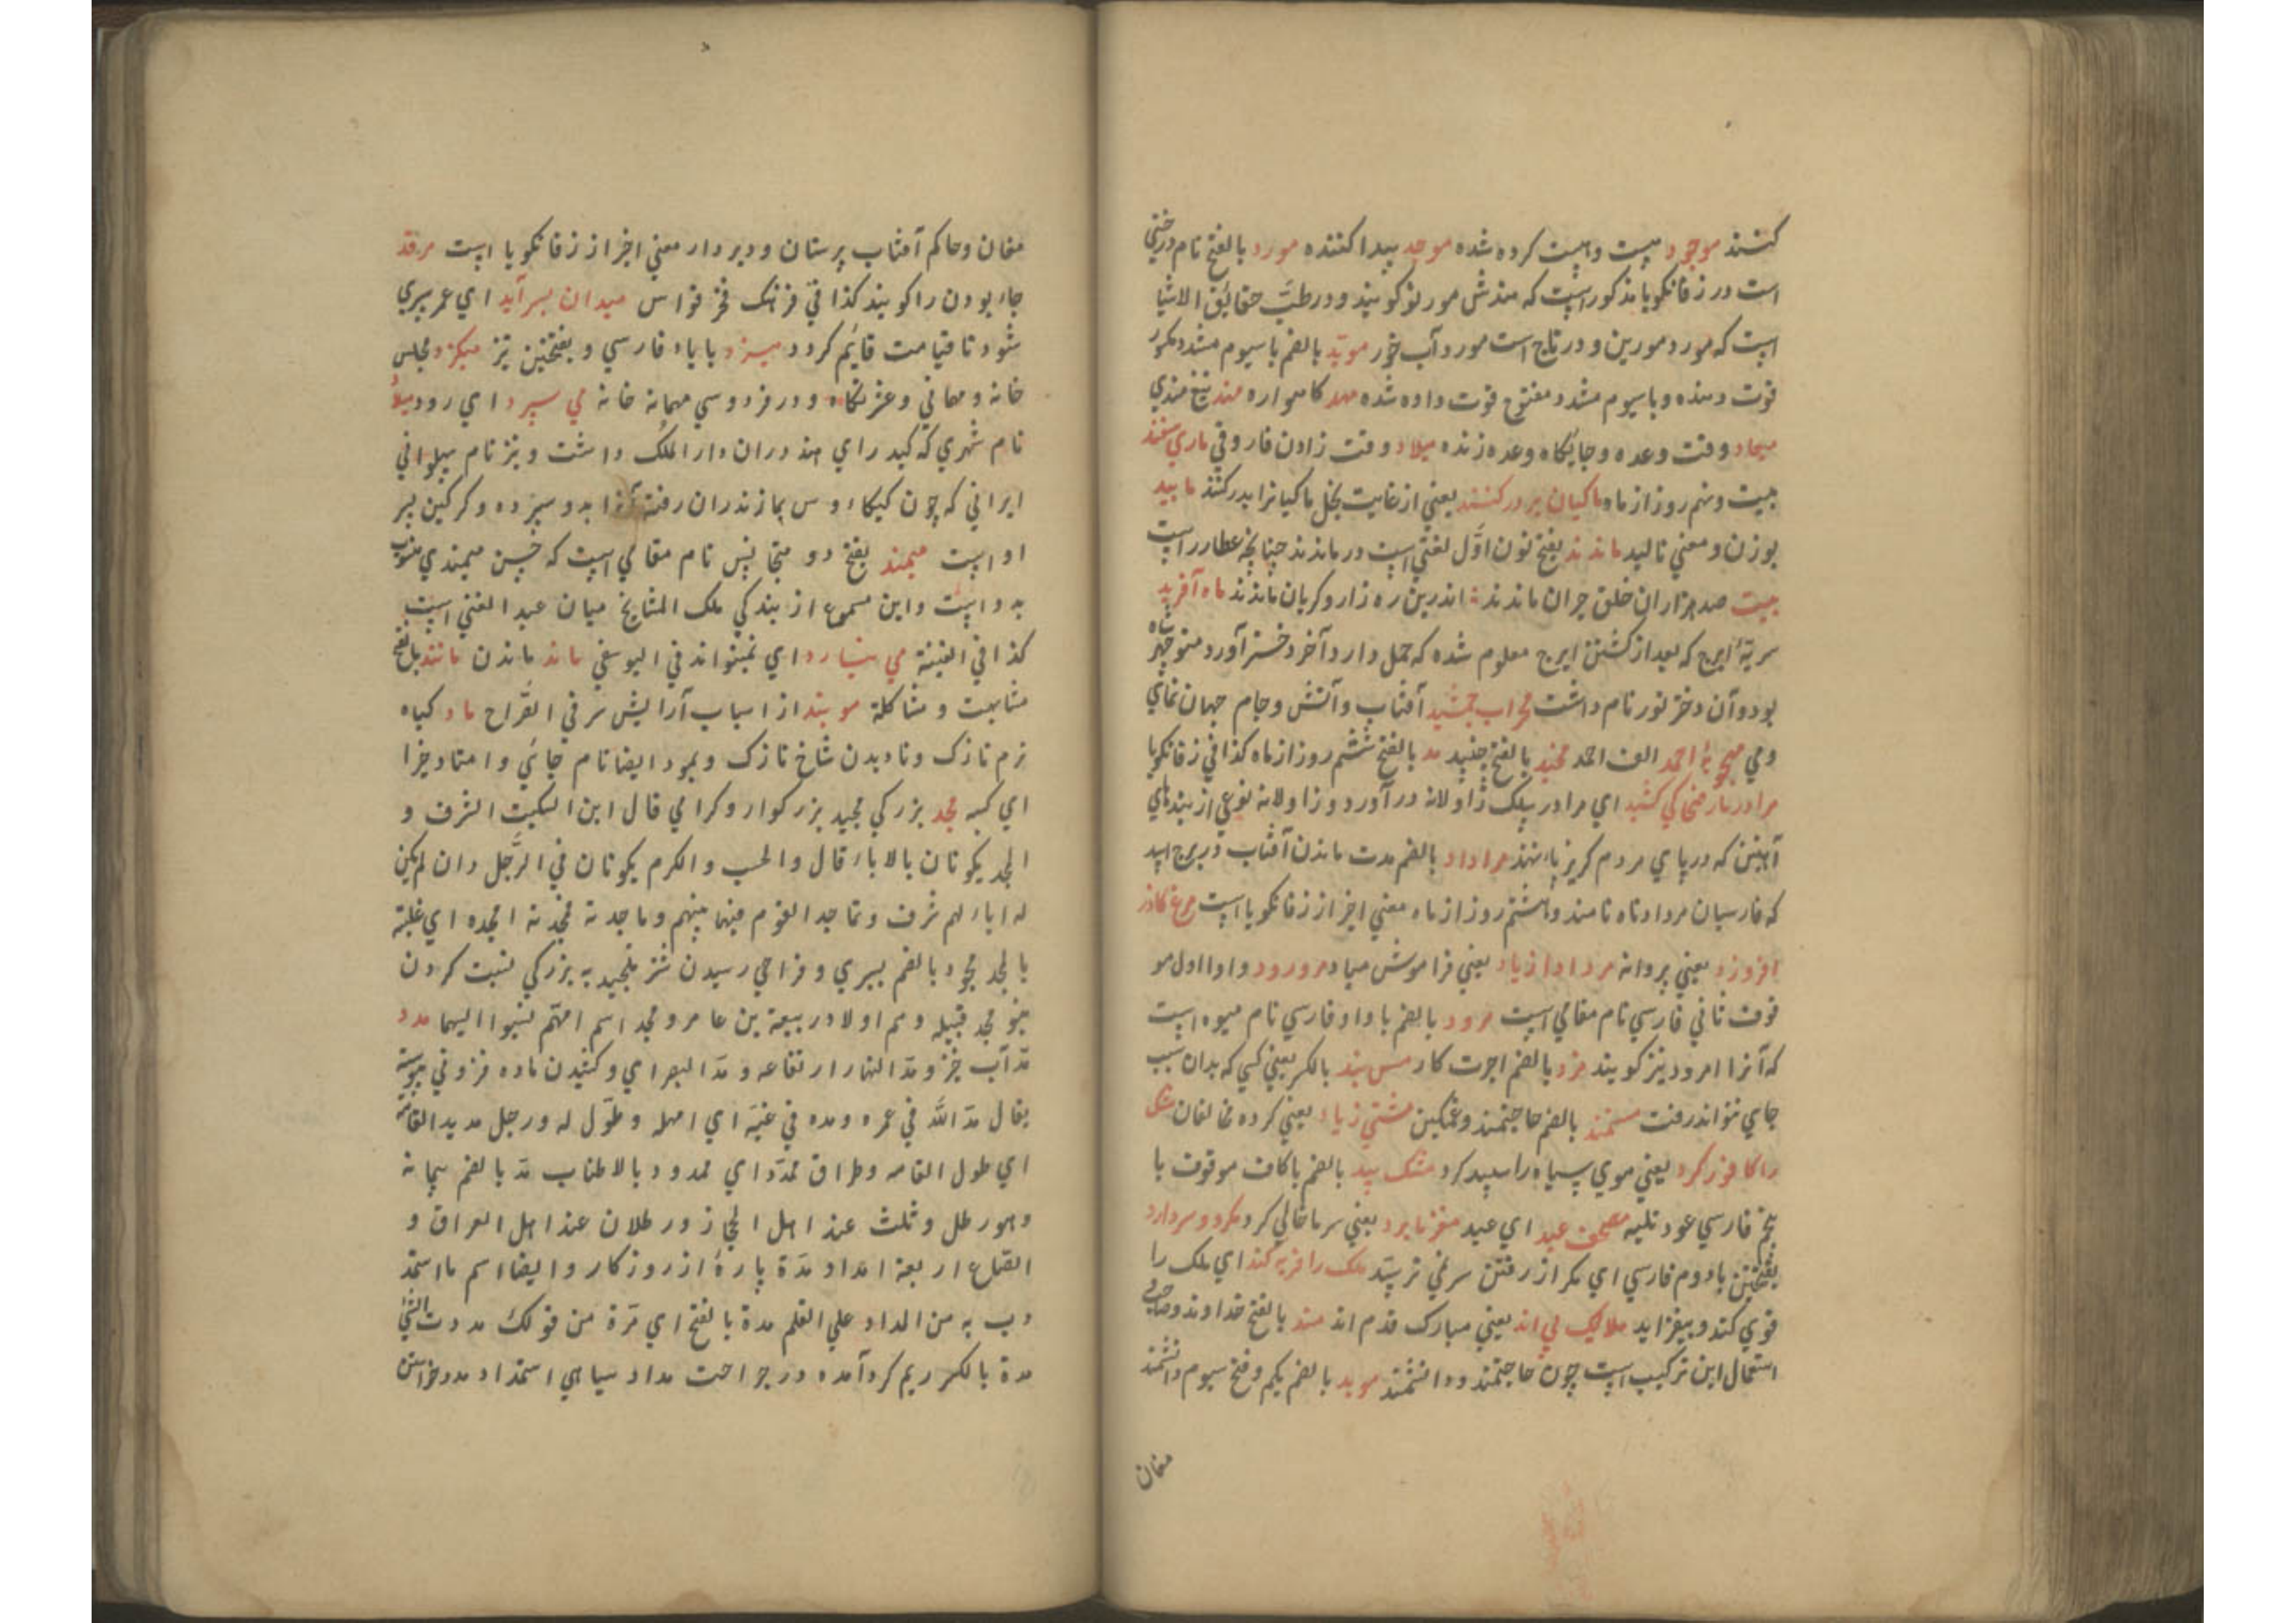 کنند موجود هست و هست کرده شده موجد پیدا کننده مورد بالفتح نام درختی
است در زفانکویا مذکور است که هندش مور لو کویند و در طب حقائق الاشیا
است که مورد مورین و در تاج است مورد آب خور موید بالضم با سیوم مشدد مکسور
قوت دهنده و با سیوم مشدد مفتوح قوت داده شده مهد کاهواره مهند تیغ هندی
میعاد وقت وعده و جایکاه وعده زنده میلاد وقت زادن فاروقی ماری سفند
بیست و نهم روز از ماه ماکیان بر در کنند یعنی از غایت بخل ماکیانرا بدر کنند مایید
بوزن و معنی نالید ماندند بفتح نون اول لغتی است در ماندند چنانچه عطار راست
بیت صد هزاران خلق حیران ماندند اندرین ره زار و کریان ماندند ماه آفرید
سریهٔ ایرج که بعد از کشتن ایرج معلوم شده که حمل دارد آخر دختر آورد منوچهر شاه
بود و آن دختر نور نام داشت محراب جمشید آفتاب و آتش و جام جهان نمای
و می احمد الف احمد مخید بالفتح جنبید مد بالفتح ششم روز از ماه کذا فی زفانکویا
مرا در مار ضحاکی کشید ای مرا در بیلک زاولانه در آورد و زاولانه نوعی از بندهای
آهنین که در پای مردم کریز پا نهند مراداد بالضم مدت ماندن آفتاب در برج اسد
که فارسیان مرداد ماه نامند و هشتم روز از ماه معنی اخر از زفانکویا است مرغ کاذر
افروزد یعنی پروانه مرد ادا از یاد یعنی فراموش میاد مرورود واو اول مو
قوف ثانی فارسی نام مقامی است مرود بالضم با واو فارسی نام میوه است
که آنرا امرود نیز کویند مزد بالضم اجرت کار مس بند بالکسر یعنی کسی که بدان سبب
جای نتواند رفت مستمند بالضم حاجتمند و غمکین مشتی زیاد یعنی کرده مخالفان مشک
را کافور کرد یعنی موی سیاه را سپید کرد مشک بید بالضم با کاف موقوف با
پنج فارسی عود تلیه مصحف عید ای عید مغز ما برد یعنی سر ما خالی کرد مکرد و سر دارد
بفتحتین با دوم فارسی ای مکر از رفتن سر نمی ترسد ملک را فربه کند ای ملک را
قوی کند و بیفزاید ملایک پی اند یعنی مبارک قدم اند مند بالفتح خداوند و صاحب
استعمال این ترکیب است چون حاجتمند و دانشمند موبد بالضم یکم و فتح سیوم دانشمند
مغان
مغان و حاکم آفتاب پرستان و دیر دار معنی اخر از زفانکویا است مرقد
جاء بودن را کویند کذا فی فرهنک فخر قواس میدان بسر آید ای عمر سپری
شود تا قیامت قایم کردد میزد با یاء فارسی و بفتحتین نیز میکزد مجلس
خانه و مهمانی و عشرتکاه و در فردوسی مهمانه خانه می سپرد ای رود میلاد
نام شهری که کید رای هند در آن دار الملک داشت و نیز نام پهلوانی
ایرانی که چون کیکاوس بمازندران رفت آنرا بدو سپرده و کرکین پسر
او است میمند بفتح دو متجانس نام مقامی است که حسن میمندی منسوب
بدو است و این مسموع از بندکی ملک المشایخ میان عبد الغنی است
کذا فی القنیة می نیارد ای نمیتواند فی الیوسفی ماند ماندن مانند بالفتح
مشابهت و مشاکلة موبند از اسباب آرایش سر فی القراح ماد کیاه
نرم نازک و نادیدن شاخ نازک و بمود ایضا نام جائی و امتاد خیرا
ای کسبه مجد بزرکی مجید بزرکوار و کرامی قال ابن السکیت الشرف و
المجد یکونان بالاباء قال و الحسب و الکرم یکونان فی الرجل و ان لم یکن
له اباء لهم شرف و تماجد القوم فیما بینهم و ماجدته فمجدته امجده ای غلبته
بالمجد مجود بالضم بسیری و فراخی رسیدن شتر تمجید به بزرکی نسبت کردن
بنو مجد قبیله و هم اولاد ربیعة بن عامر و مجد اسم امهم نسبوا الیها مدد
مد آب خیز و مد النهار ارتفاعه و مد البصر ای و کشیدن ماده فزونی پیوسته
یقال مد الله فی عمره و مده فی غیه ای امهله و طول له و رجل مدید القامة
ای طول القامه و طراق ممدد ای ممدود بالاطناب مد بالضم پیمانه
و هو رطل و ثلث عند اهل الحجاز و رطلان عند اهل العراق و
الصاع اربعة امداد مدة پارهٔ از روزکار و ایضا اسم ما استمد
دب به من المداد علی القلم مدة بالفتح ای مرة من قولک مددت الشئ
مدة بالکسر ریم کرد آمده در جراحت مداد سیاهی استمداد مدد خواستن